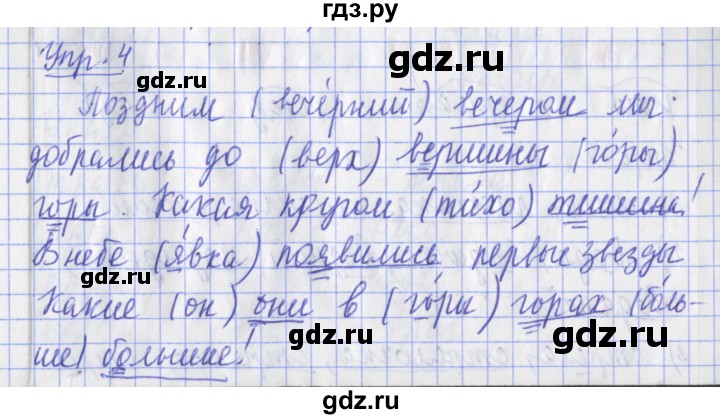 гдз.ру
gdz.ru
Упр. 4
gdz.ru
Поздним (вече́рний) вечером мы
добрались до (верх) вершины (го́ры)
горы. Какая кругом (ти́хо) тишина!
В небе (я́вка) появились первые звезды
Какие (он) они в (го́ры) горах (бо́ль-
ше) большие!
gdz.ru
gdz.ru
gdz.ru
gdz.ru
gdz.ru
gdz.ru
gdz.ru